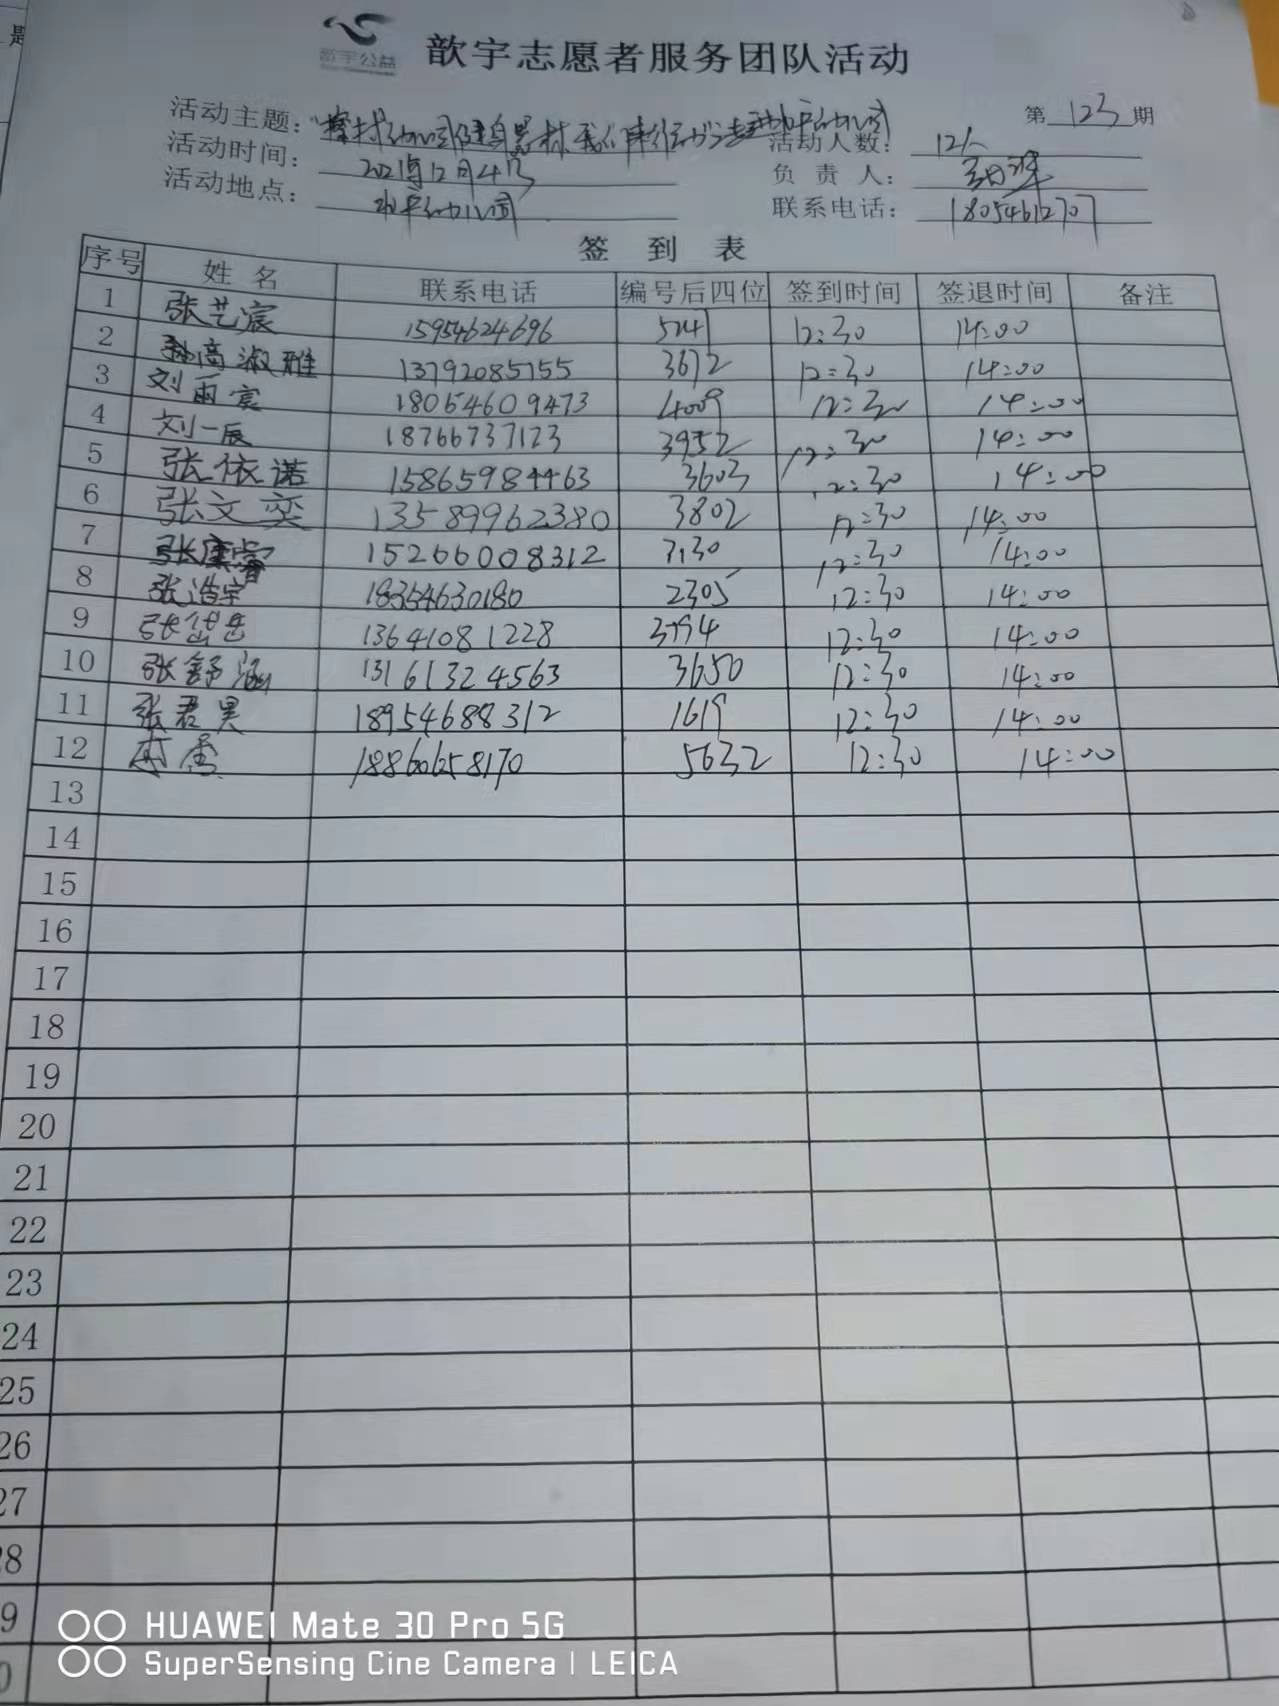 歆宇公益
歆宇志愿者服务团队活动
第 123 期
活动主题：
活动人数： 12人
活动时间： 2021年12月4号
负责人：
活动地点： 幼儿园
联系电话： 18054612707
签到表
序号 姓名 联系电话 编号后四位 签到时间 签退时间 备注
1 张艺宸 15954624696 12:30 14:00
2 高淑雅 13792085755 3672 12:30 14:00
3 刘雨宸 18054609473 4009 12:30 14:00
4 刘一辰 18766737123 3952 12:30 14:00
5 张依诺 15865984463 3603 12:30 14:00
6 张文奕 13589962380 3802 12:30 14:00
7 张康睿 15266008312 7130 12:30 14:00
8 张浩宇 18354630180 2305 12:30 14:00
9 张岱岳 13641081228 3794 12:30 14:00
10 张舒涵 13161324563 3650 12:30 14:00
11 张君昊 18954688312 1619 12:30 14:00
12 5632 12:30 14:00
13
14
15
16
17
18
19
20
21
22
23
24
25
26
27
28
9
0
HUAWEI Mate 30 Pro 5G
SuperSensing Cine Camera | LEICA